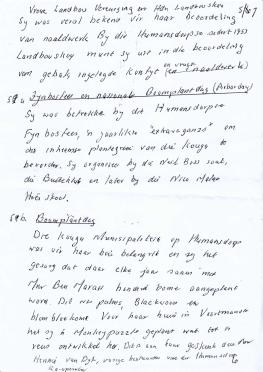 Vroue Landbou Vereniging en Hoër Landbouskou
Sy was veral bekend vir haar beoordeling
van naaldwerk By die Humansdorpse
Landbouskou munt sy uit in die beoordeling
van gebak, ingelegde
5(a) Fynbosfees en nasionale Boomplantdag (Arborday)
Sy was betrokke by die Humansdorpse
Fynbosfees, 'n jaarlikse "extravaganza" om
die inheemse plantegroei van die Kouga te
bevorder. Sy organiseer by die
die Buiteklub en later by die Nico Malan
Hoërskool.
5(b) Boomplantdag
Die Kouga Munisipaliteit op Humansdorp
was vir haar baie belangrik en sy het
gesorg dat daar elke jaar saam met
Mnr Ben Marais honderd bome aangeplant
word. Dit was palms, Blackwood en
blombome Voor haar huis in Voortman
het sy 'n Monkeypuzzle geplant wat tot 'n
reus ontwikkel het. Dit is aan haar geskenk deur
Hennie van Dyk, vorige bestuurder van die Humansdorp
Ko-operasie